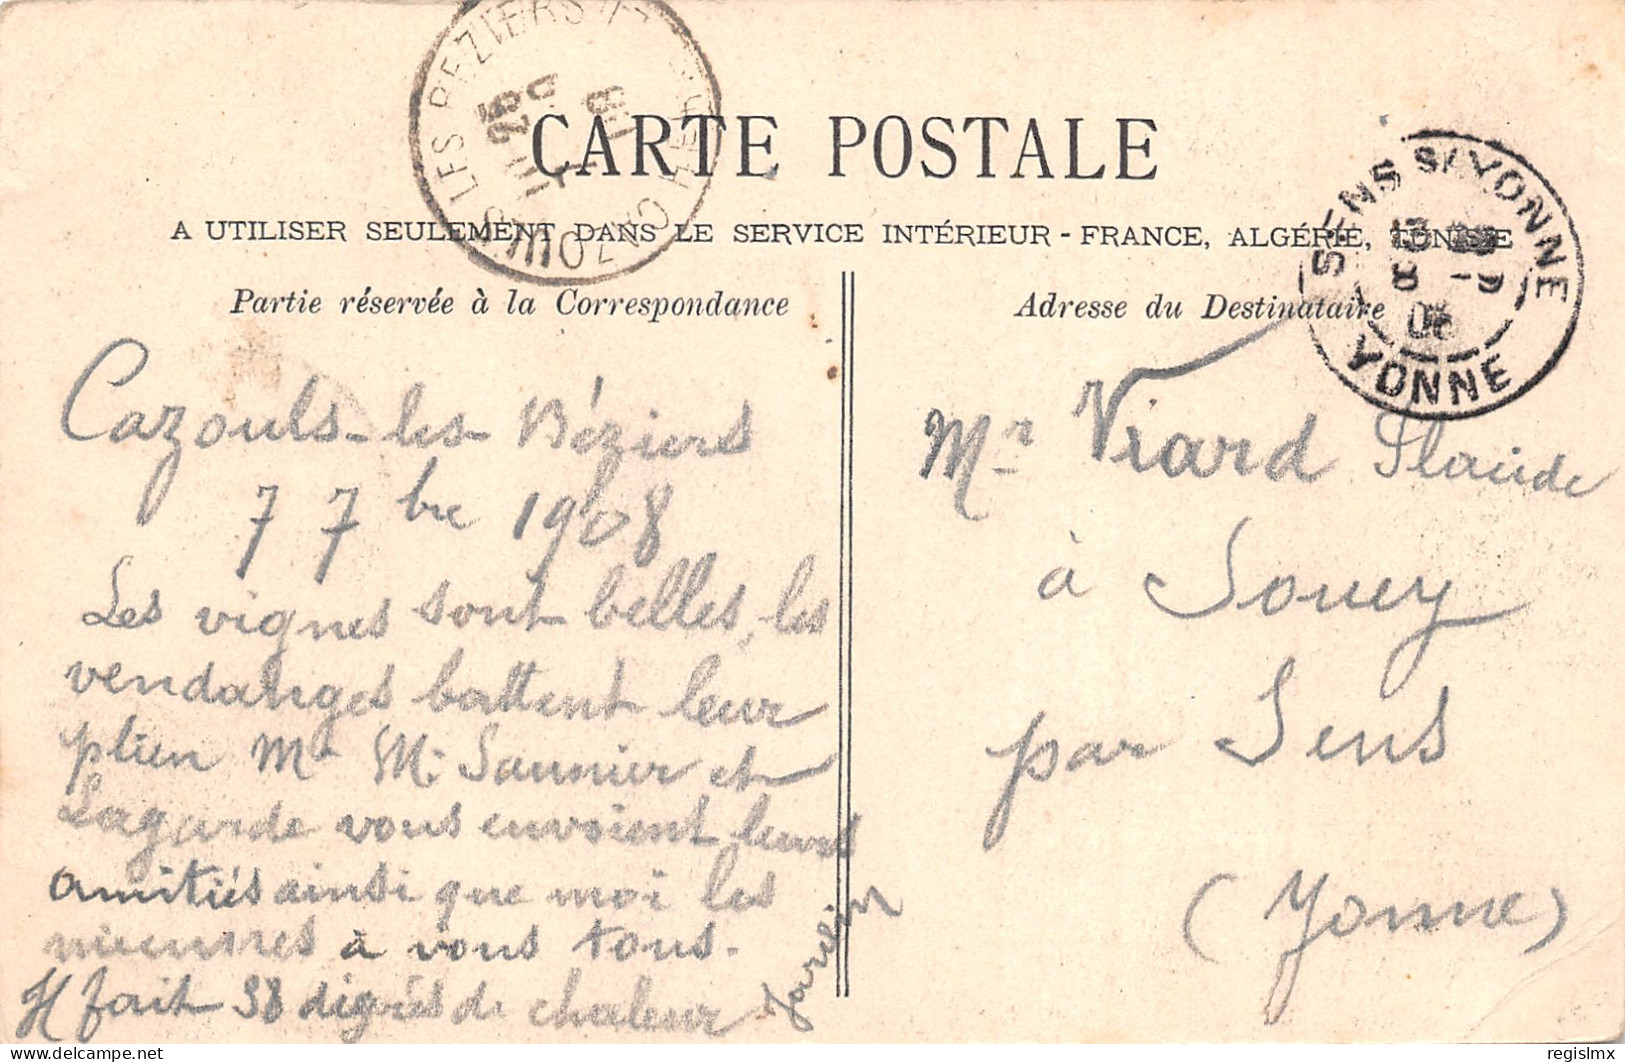 CARTE POSTALE
A UTILISER SEULEMENT DANS LE SERVICE INTÉRIEUR - FRANCE, ALGÉRIE, TUNISIE
Partie réservée à la Correspondance
Cazouls-les-Béziers
7 7bre 1908
Les vignes sont belles, les
vendanges battent leur
plien Mr M. Saunier et
Lagarde vous envoient leurs
amitiés ainsi que moi les
miennes à vous tous.
Il fait 38 degrés de chaleur
Adresse du Destinataire
Mr Viard
à Soucy
par Sens
(Yonne)
LES BEZIERS
SENS S/YONNE
YONNE
delcampe.net
regislmx